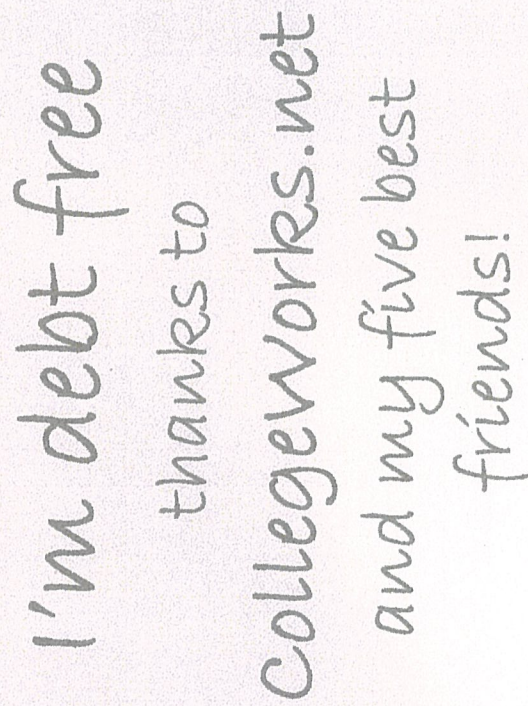 I'm debt free
thanks to
Collegeworks.net
and my five best
friends!